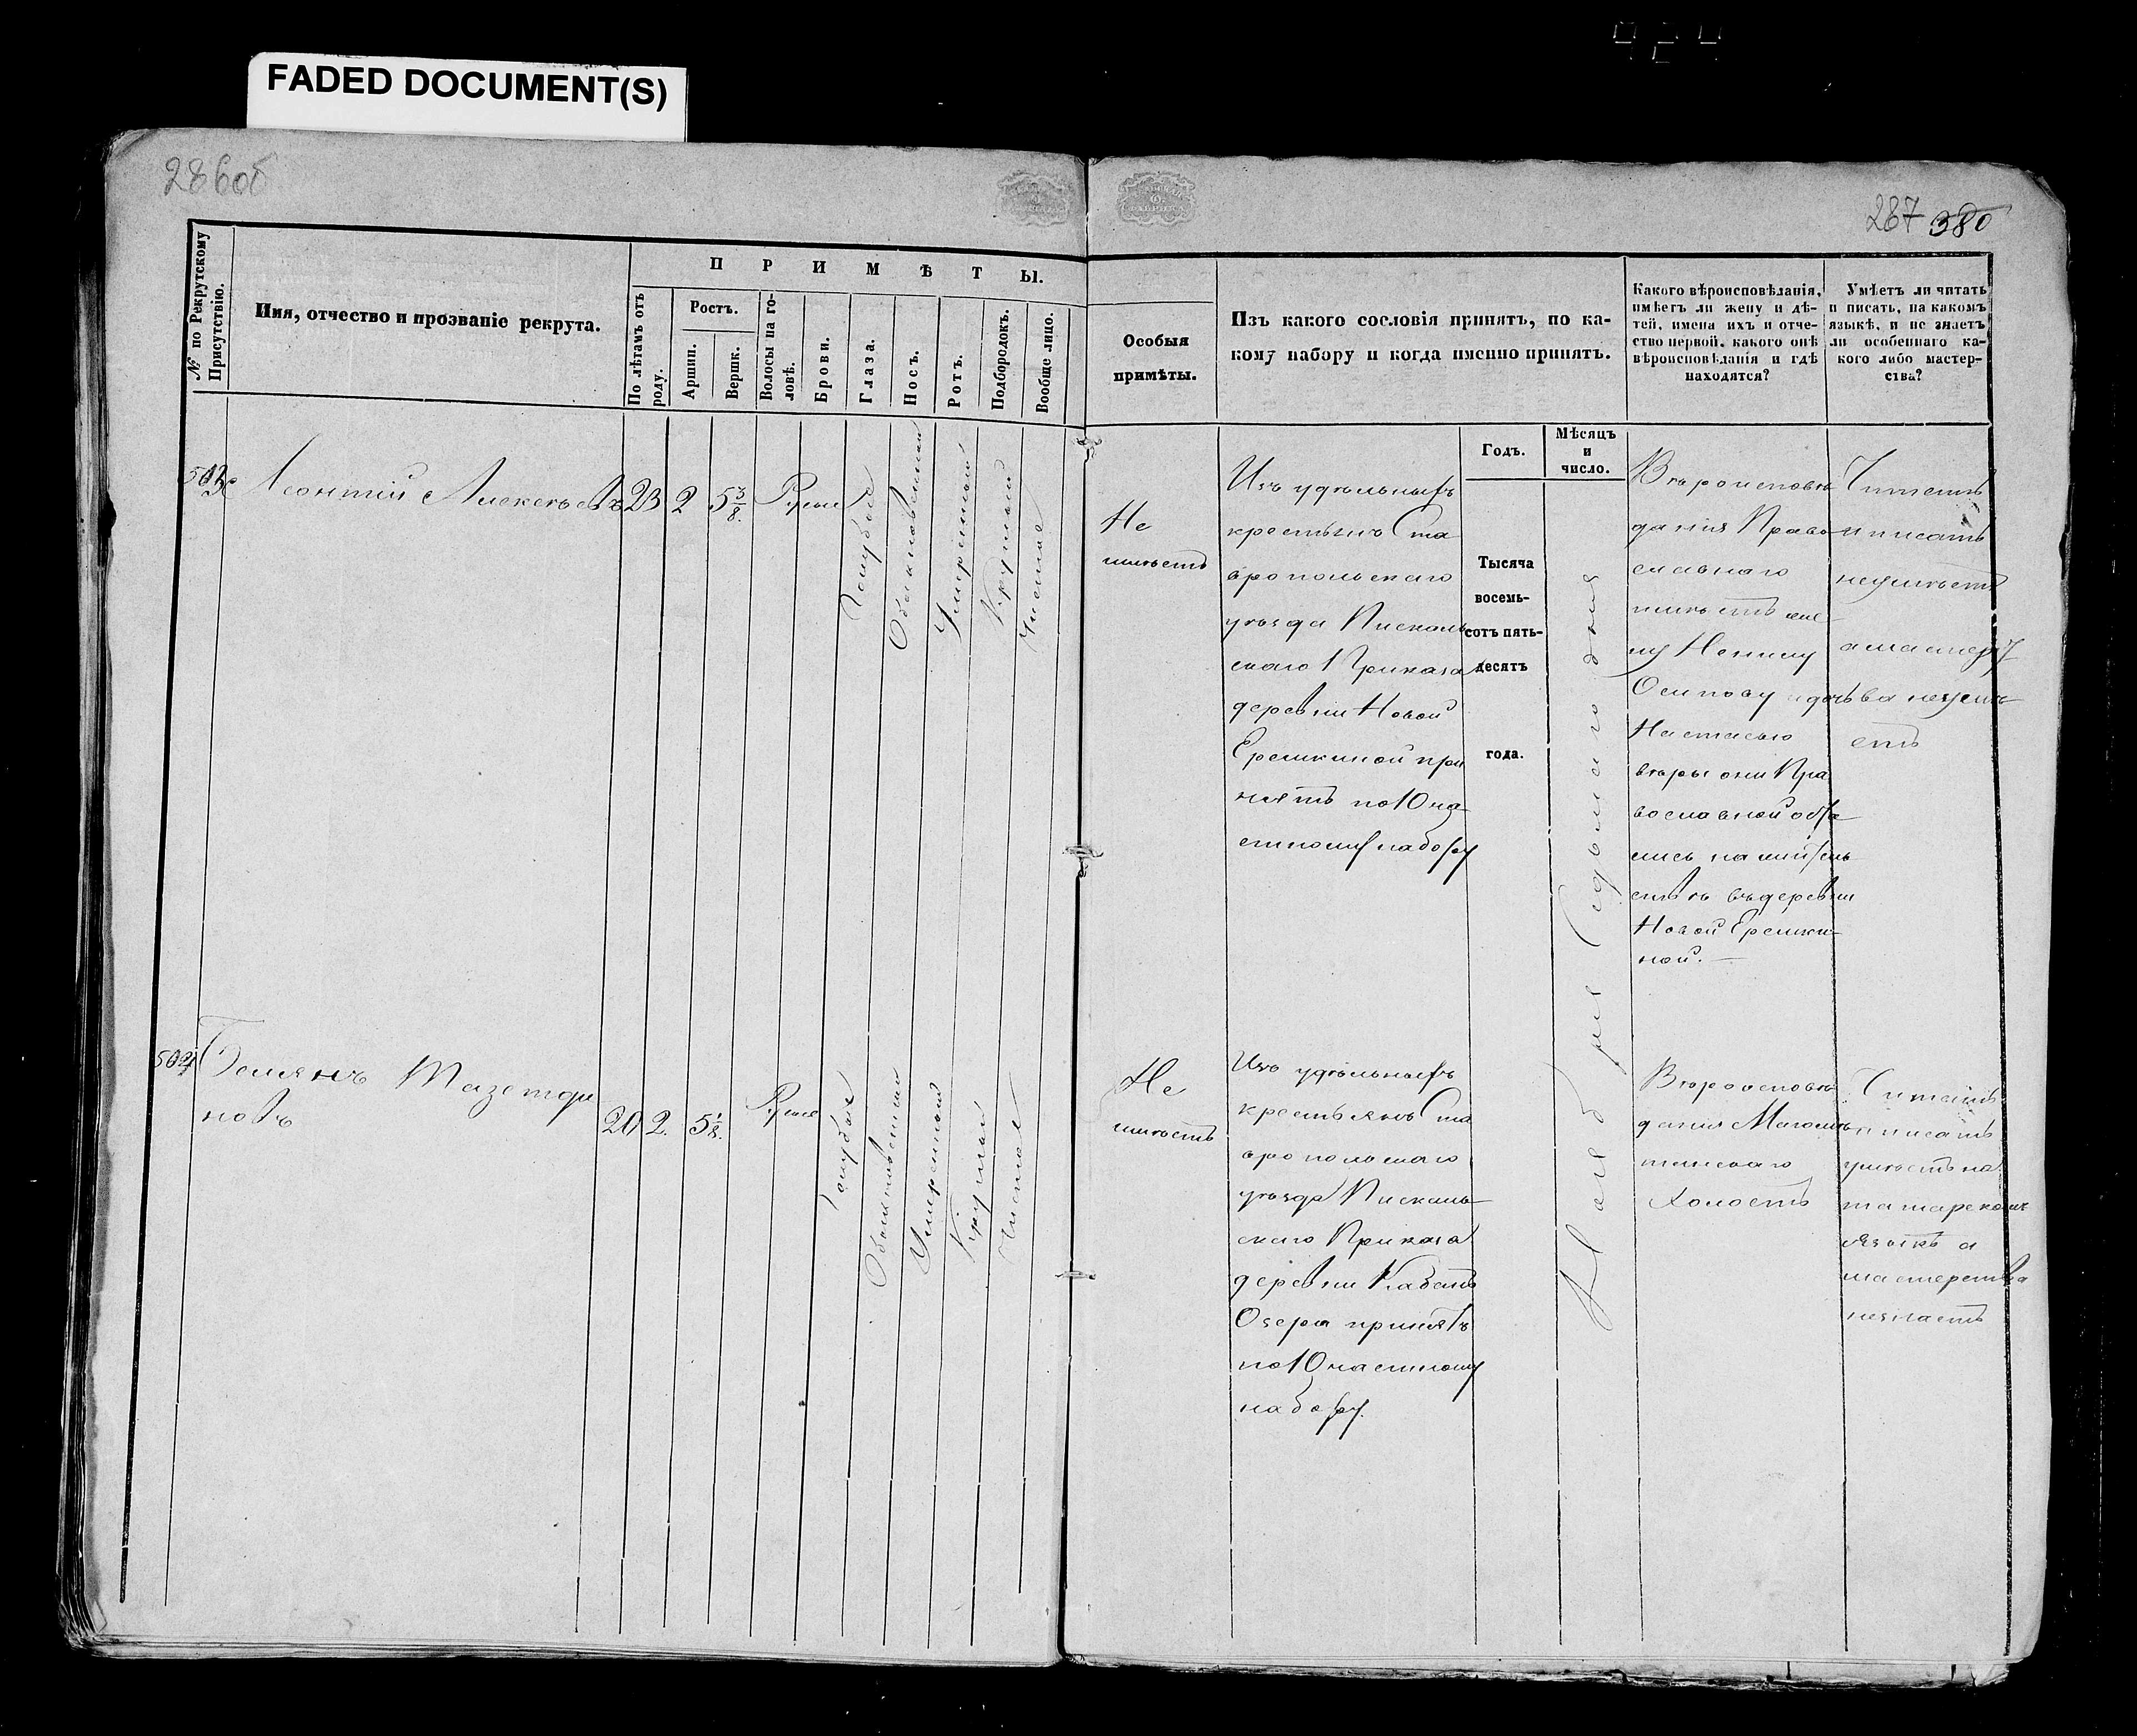 FADED DOCUMENT(S)
286об
287 380
№ по Рекрутскому Присутствію.
Имя, отчество и прозваніе рекрута.
ПРИМѢТЫ.
По лѣтамъ отъ роду.
Ростъ.
Аршин.
Вершк.
Волосы на головѣ.
Брови.
Глаза.
Носъ.
Ротъ.
Подбородокъ.
Вообще лицо.
Особыя
примѣты.
Изъ какого сословія принятъ, по ка-
кому набору и когда именно принятъ.
Какого вѣроисповѣданія,
имѣетъ ли жену и дѣ-
тей, имена ихъ и отче-
ство первой, какого онѣ
вѣроисповѣданія и гдѣ
находятся?
Умѣетъ ли читать
и писать, на какомъ
языкѣ, и не знаетъ
ли особеннаго ка-
кого либо мастер-
ства?
Годъ.
Мѣсяцъ
и
число.
Леонтій Алексѣевъ 23 2 5 3/8. Русые
Голубые
Обыкновенный
Умѣренный
Круглый
Чистое
Не
имѣетъ
Изъ удѣльныхъ
крестьянъ Ста
вропольскаго
уѣзда Пискаль
скаго Приказа
деревни Новой
Еремкиной при
нятъ по 10 ча
стному набору
Тысяча
восемь-
сотъ пять-
десятъ
года.
Ноября Седьмаго дня
Вѣроисповѣ
данія Право
славнаго
имѣетъ же
ну Ненилу
Осипову и дочь
Настасью
вѣры они Пра
вославной обра
лись на житель
ствѣ въ деревни
Новой Еремки-
ной.
Читать
и писать
неумѣетъ
а мастерст
ва незна
етъ
Белянъ Тазетди
новъ
20 2. 5 1/8. Русые
Голубые
Обыкновенный
Умѣренный
Круглый
Чистое
Не
имѣетъ
Изъ удѣльныхъ
крестьянъ Ста
вропольскаго
уѣзда Пискаль-
скаго Приказа
деревни Кабанъ
Озера принятъ
по 10 частному
набору.
Вѣроисповѣ
данія Магоме
танскаго
Холостъ
Читать
и писать
умѣетъ на
татарскомъ
языкѣ а
мастерства
незнаетъ